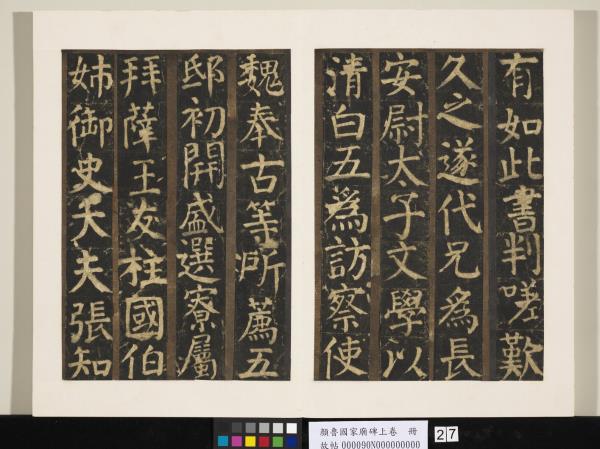 有如此書判嗟歎
久之遂代兄為長
安尉太子文學以
清白五為訪察使
魏奉古等所薦五
邸初開盛選寮屬
拜薛王友柱國伯
姊御史大夫張知
顏魯國家廟碑上卷 冊
故帖 000090N000000000
27